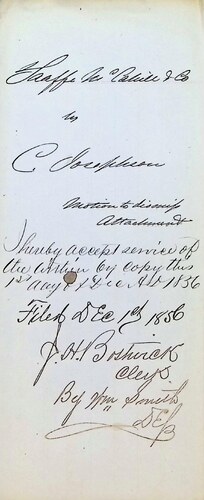 Haaffe McCahill & Co
by
C Josephson
Motion to dismiss
Attachment
I hereby accept service of
the within by copy this
1st day of Dec AD 1856
Filed Dec 1st 1856
J. H. Bostwick
Clerk
By Wm Smith